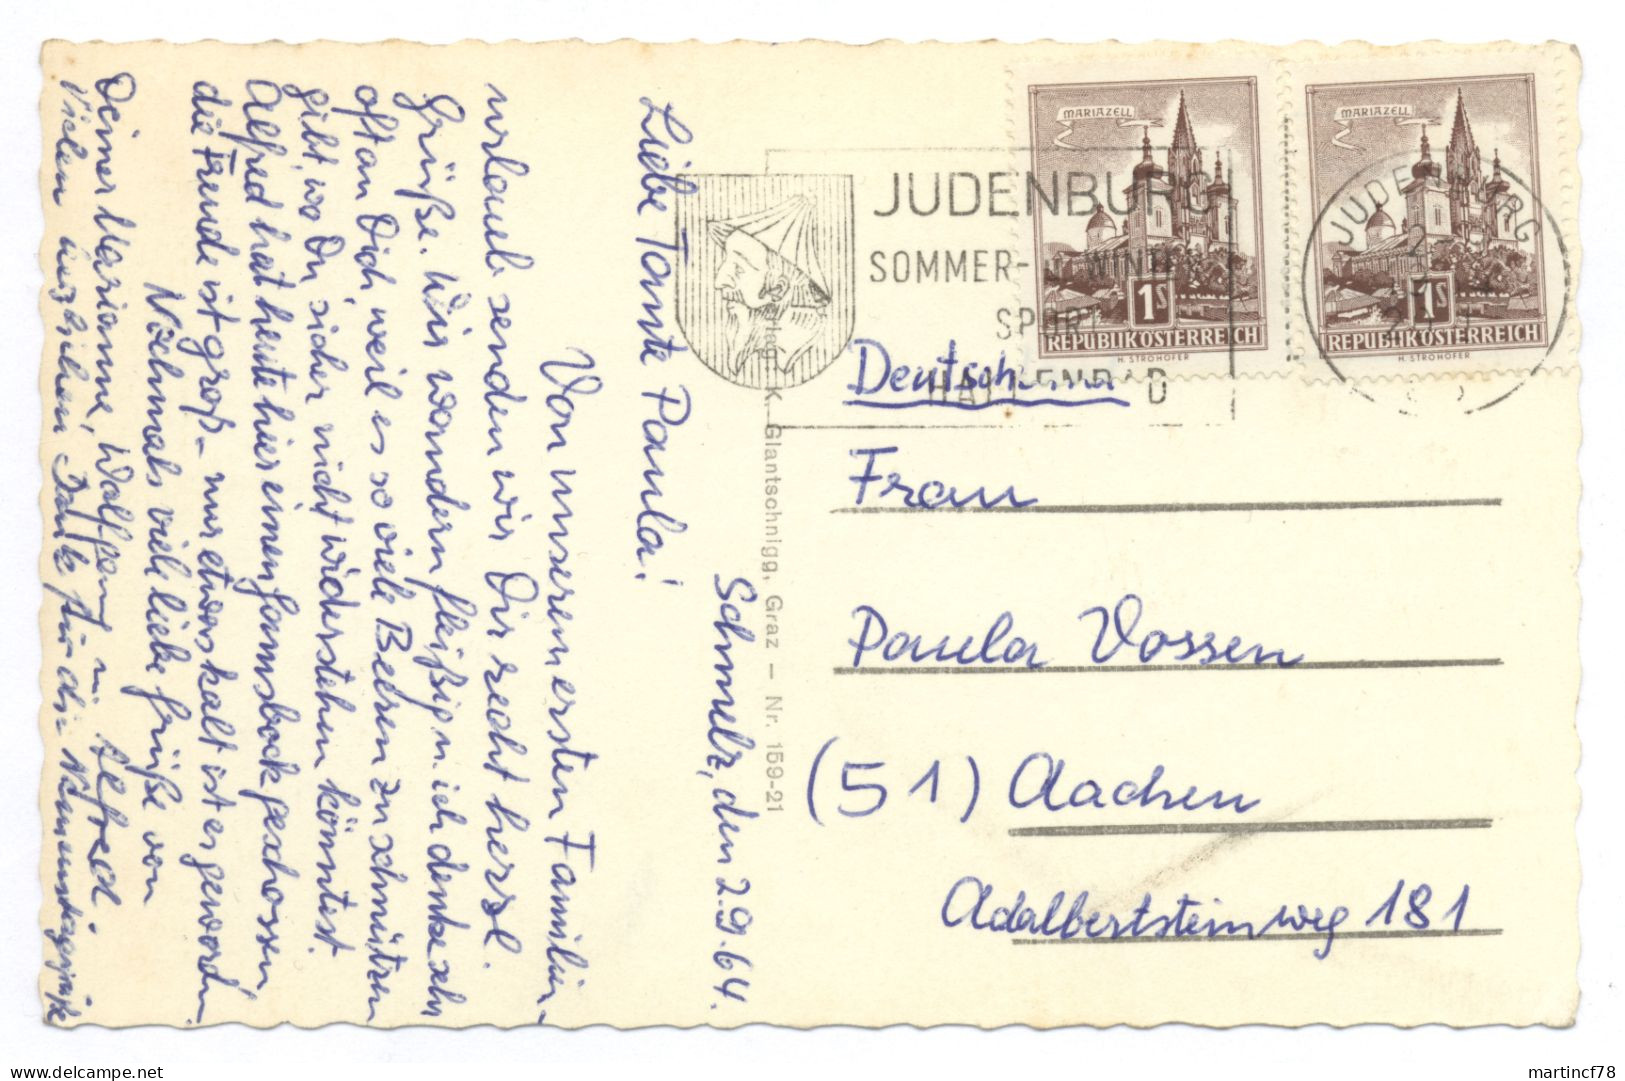 Schmelz, den 2.9.64.
Liebe Tante Paula!
Von unserem ersten Familien-
urlaub senden wir Dir recht herzl.
Grüße. Wir wandern fleißig u. ich denke sehr
oft an Dich, weil es so viele Beeren zu schnützen
gibt, wo Du sicher nicht widerstehen könntest.
Alfred hat heute hier einen Gamsbock geschossen
die Freude ist groß - nur etwas kalt ist es geword
Nochmals viele liebe Grüße von
Deiner Marianne, Wolfgang u. Alfred
Vielen herzlichen Dank für die Namenstagsgrüße
Verlag: K. Glantschnigg, Graz — Nr. 159-21
JUDENBURG
SOMMER- U. WINTER
SPORT
HALLENBAD
MARIAZELL
1S
REPUBLIK ÖSTERREICH
H. STROHOFER
MARIAZELL
1S
REPUBLIK ÖSTERREICH
H. STROHOFER
JUDENBURG
Deutschland
Frau
Paula Vossen
(51) Aachen
Adalbertsteinweg 181
www.delcampe.net
martincf78